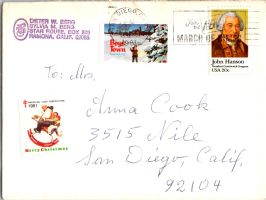 DIETER W. BERG
SYLVIA M. BERG
STAR ROUTE, BOX 899
RAMONA, CALIF. 92065
DIEGO
Boys Town
MARCH OF DIMES
John Hanson
President Continental Congress
USA 20c
To: Mrs.
Anna Cook
3515 Nile
San Diego, Calif.
92104
1981
Merry Christmas